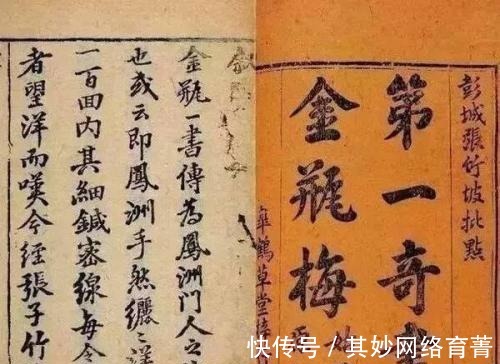 彭城張竹坡批點
第一奇
金瓶梅
皐鶴草堂
金瓶一書傳為鳳洲門人之
也或云即鳳洲手然纚纚洋
一百回內其細鍼密線每令
者望洋而嘆今經張子竹
快传号 / 其妙网络育菁